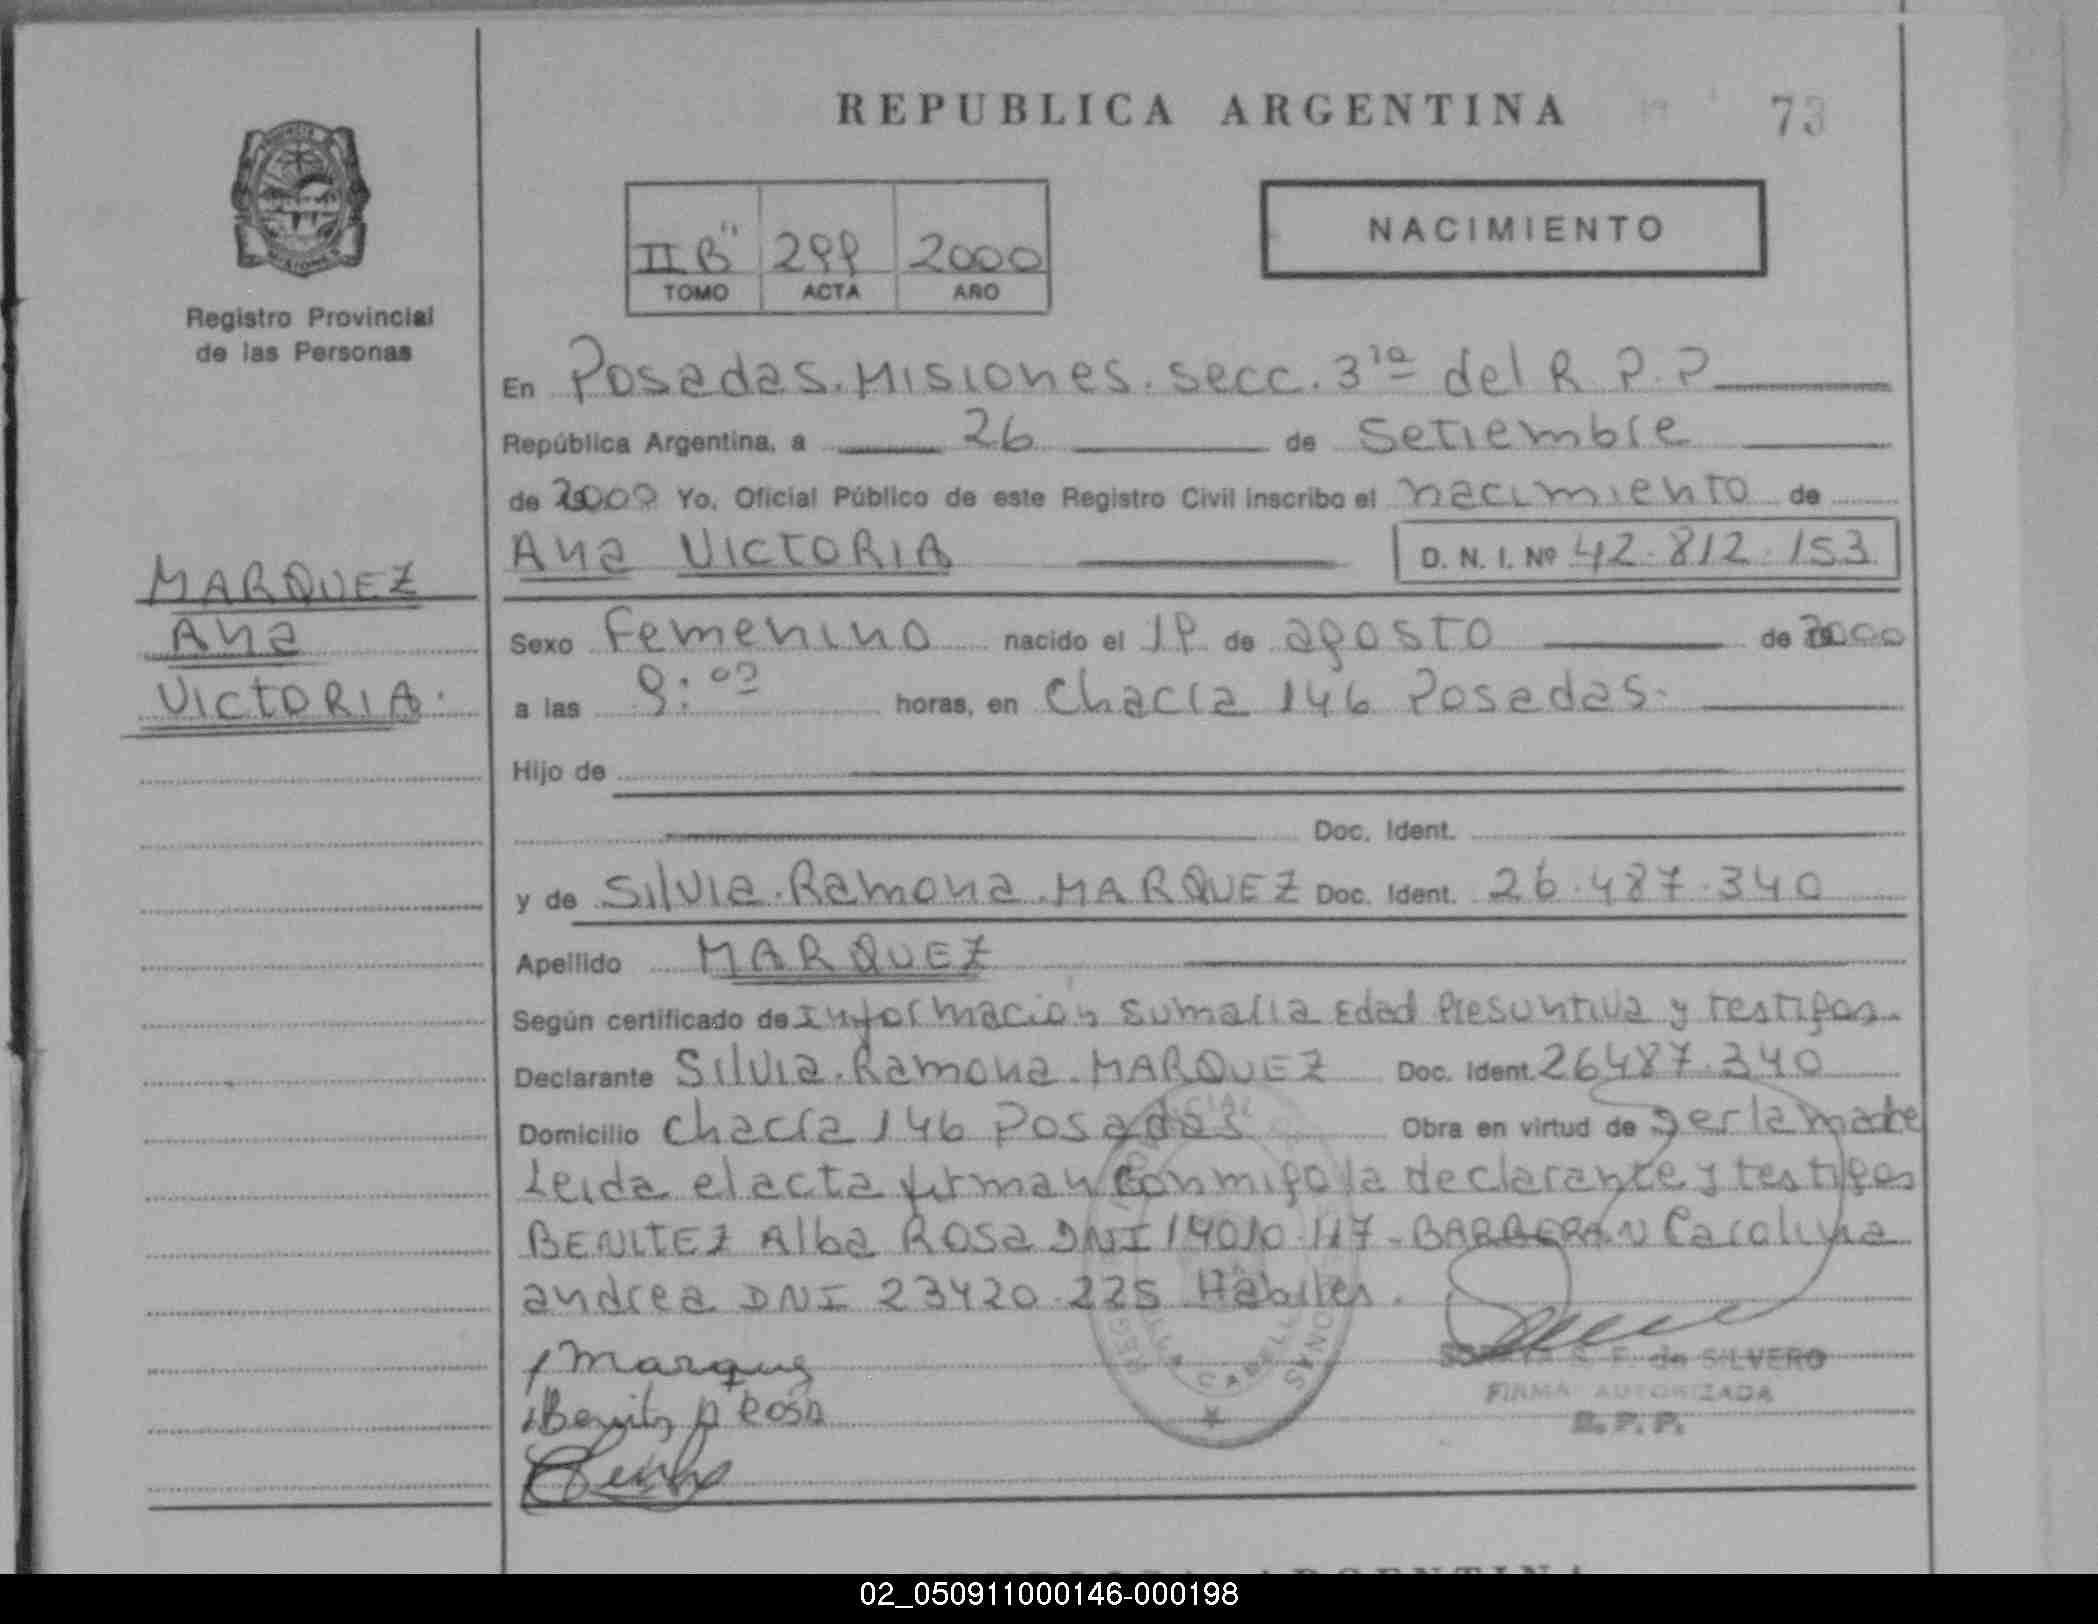 REPUBLICA ARGENTINA
73
NACIMIENTO
II B" 299 2000
TOMO ACTA AÑO
Registro Provincial
de las Personas
En Posadas. Misiones. secc. 3ra del R P. P
República Argentina, a 26 de Setiembre
de 2000 Yo, Oficial Público de este Registro Civil inscribo el nacimiento de
Ana VICTORIA D. N. I. Nº 42.812.153
MARQUEZ
Ana
VICTORIA.
Sexo Femenino nacido el 19 de agosto de 2000
a las 9:00 horas, en Chacra 146 Posadas.
Hijo de
Doc. Ident.
y de Silvia. Ramona. MARQUEZ Doc. Ident. 26.487.340
Apellido MARQUEZ
Según certificado de Información Sumaria Edad Presuntiva y testigos.
Declarante Silvia. Ramona. MARQUEZ Doc. Ident. 26487.340
Domicilio Chacra 146 Posadas Obra en virtud de ser la madre
Leida el acta firman conmigo la declarante y testigos
BENITEZ Alba Rosa DNI 14010.117 - BARBERAN Carolina
andrea DNI 23420.225 Habiles.
Marquez
Benitez A Rosa
S. F. de SILVERO
FIRMA AUTORIZADA
R. P. P.
REPUBLICA ARGENTINA
02_050911000146-000198